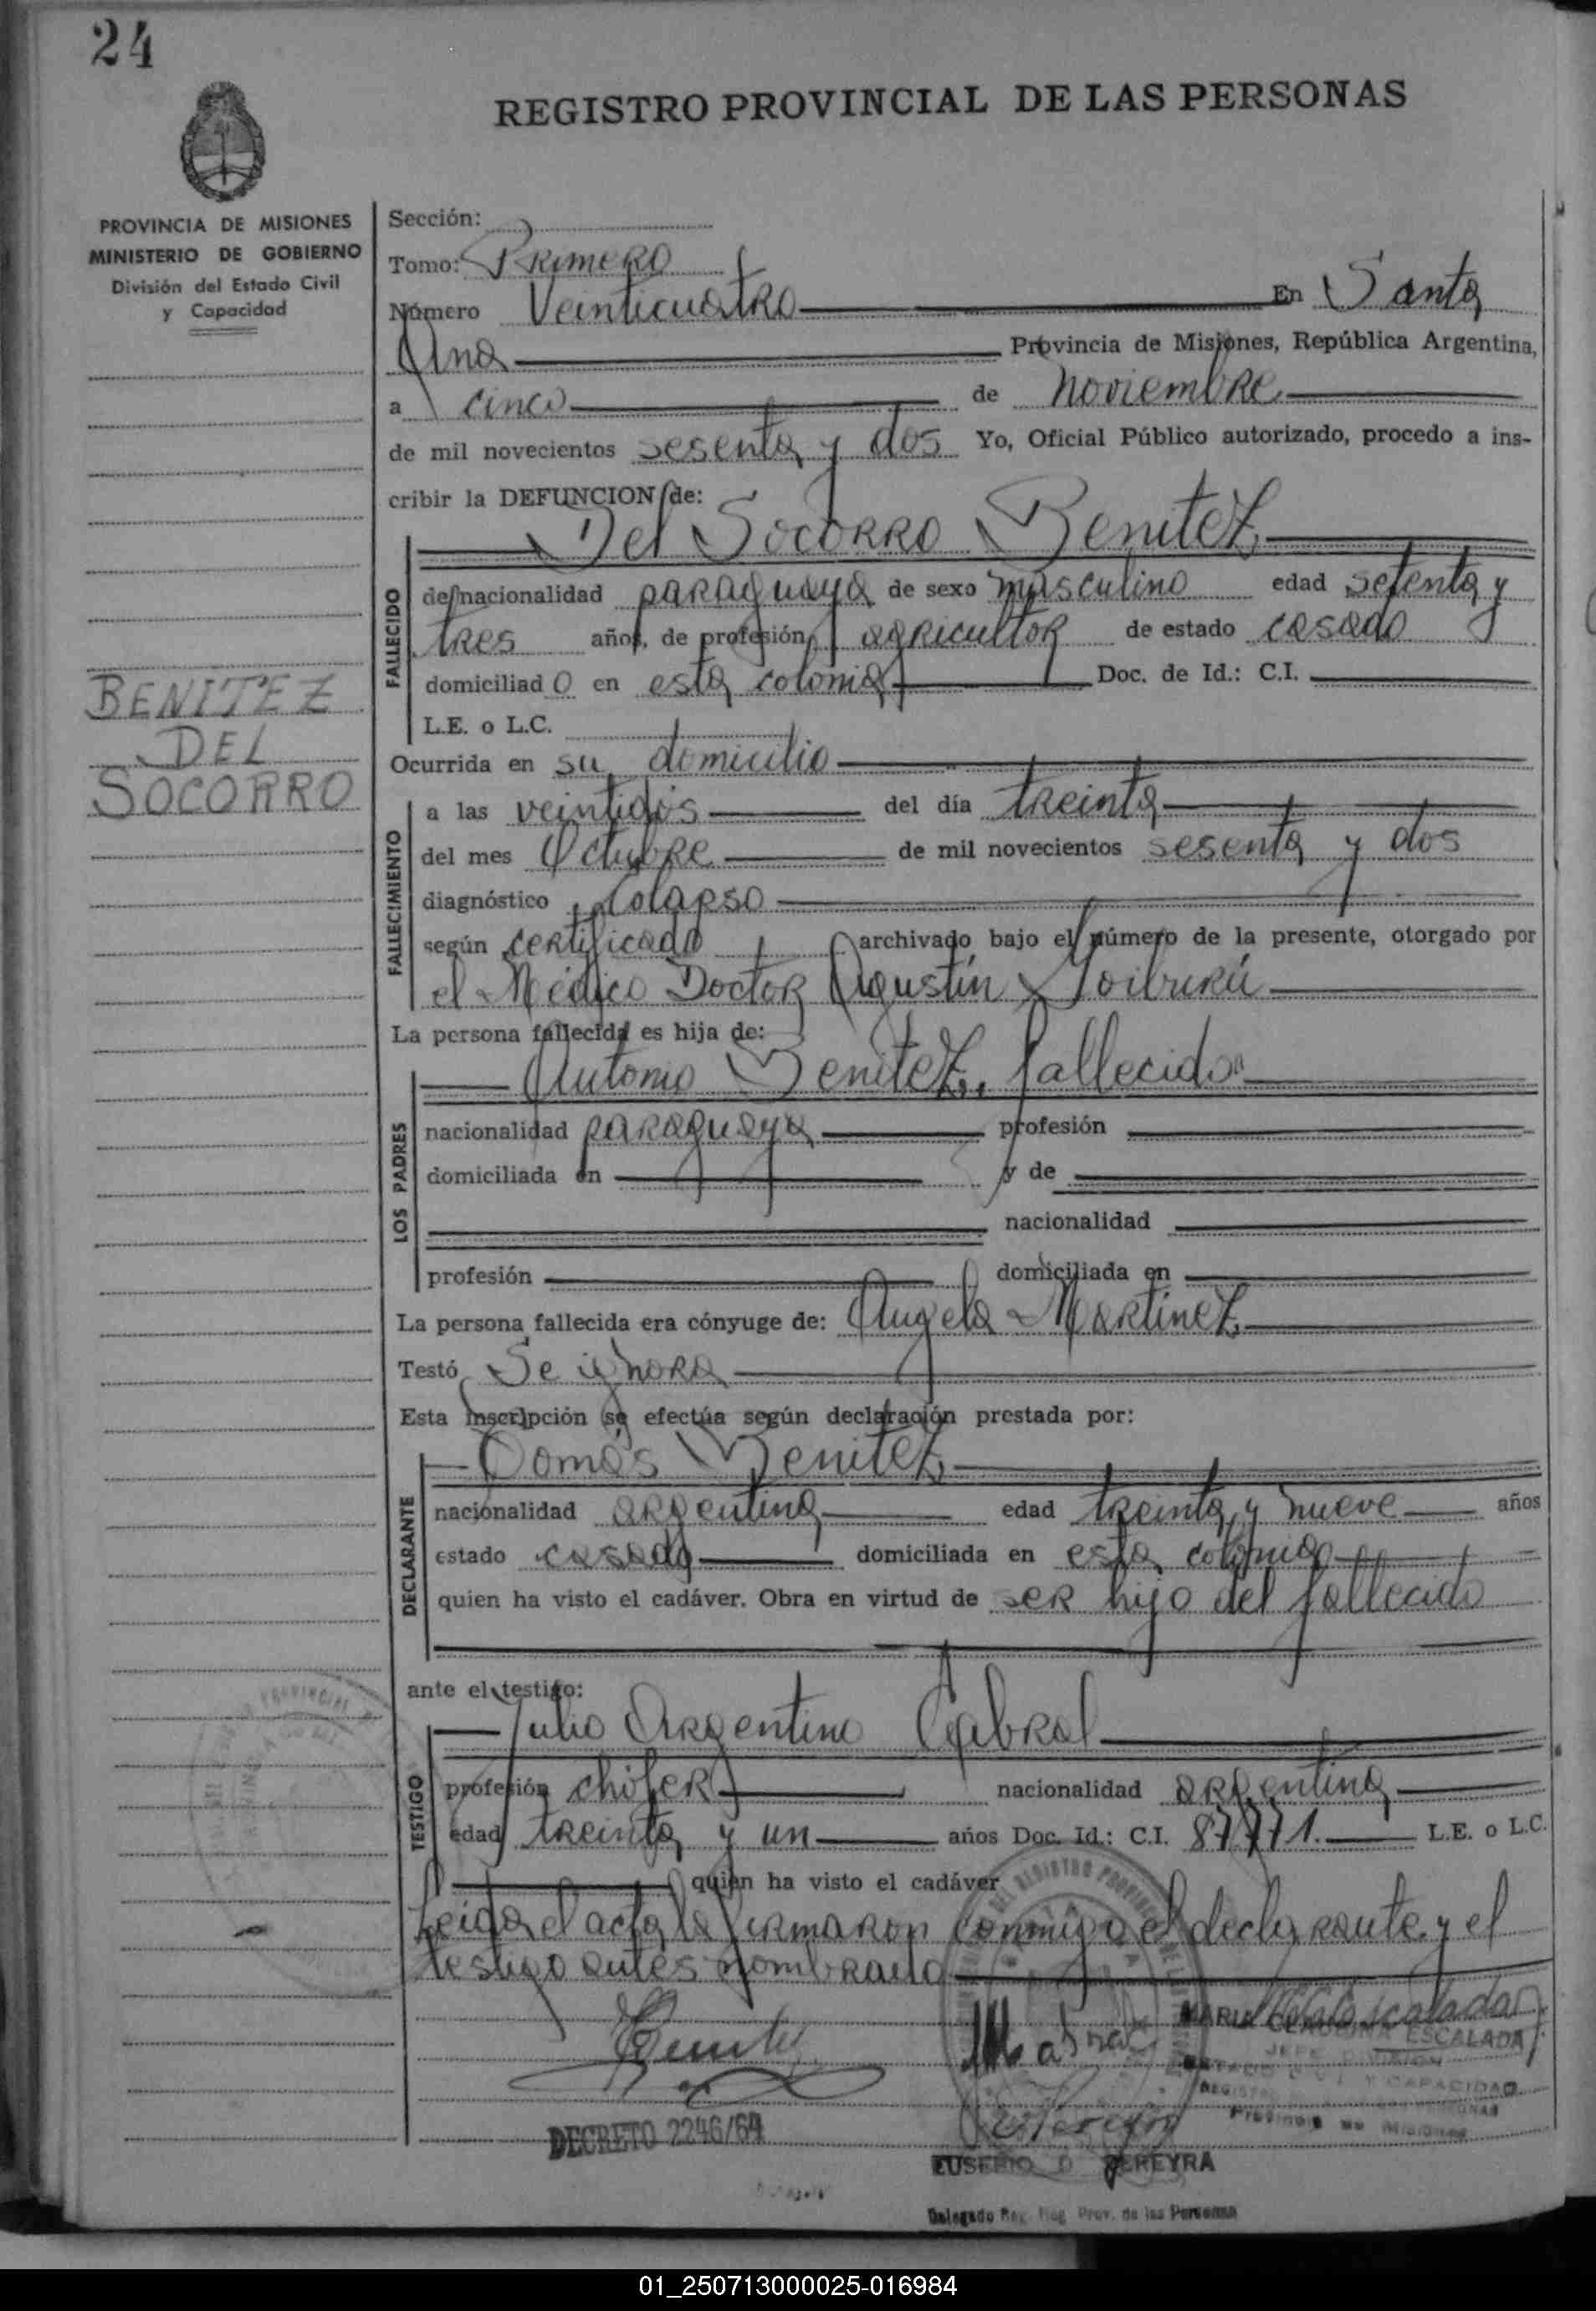 24
REGISTRO PROVINCIAL DE LAS PERSONAS
PROVINCIA DE MISIONES
MINISTERIO DE GOBIERNO
División del Estado Civil
y Capacidad
BENITEZ
DEL
SOCORRO
Sección:
Tomo: Primero
Número Veinticuatro En Santa
Ana Provincia de Misiones, República Argentina,
a cinco de noviembre
de mil novecientos sesenta y dos Yo, Oficial Público autorizado, procedo a ins-
cribir la DEFUNCION de:
Del Socorro Benitez
FALLECIDO
de nacionalidad paraguaya de sexo masculino edad setenta y
tres años, de profesión agricultor de estado casado
domiciliado en esta colonia Doc. de Id.: C.I.
L.E. o L.C.
Ocurrida en su domicilio
FALLECIMIENTO
a las veintidós del día treinta
del mes Octubre de mil novecientos sesenta y dos
diagnóstico Colapso
según certificado archivado bajo el número de la presente, otorgado por
el Médico Doctor Agustín Goiburú
La persona fallecida es hija de:
LOS PADRES
Antonio Benitez, fallecido
nacionalidad paraguaya profesión
domiciliada en y de
nacionalidad
profesión domiciliada en
La persona fallecida era cónyuge de: Angela Martinez
Testó Se ignora
Esta inscripción se efectúa según declaración prestada por:
DECLARANTE
Tomás Benitez
nacionalidad argentina edad treinta y nueve años
estado casado domiciliada en esta colonia
quien ha visto el cadáver. Obra en virtud de ser hijo del fallecido
ante el testigo:
TESTIGO
Julio Argentino Cabral
profesión chófer nacionalidad argentina
edad treinta y un años Doc. Id.: C.I. 87771. L.E. o L.C.
quien ha visto el cadáver
Leida el acta la firmaron conmigo el declarante y el
testigo antes nombrado
MARIA CLAUDINA ESCALADA
JEFE DIVISION
ESTADO CIVIL Y CAPACIDAD
Provincia de Misiones
DECRETO 2246/64
EUSEBIO D PEREYRA
Delegado Reg. Prov. de las Personas
01_250713000025-016984